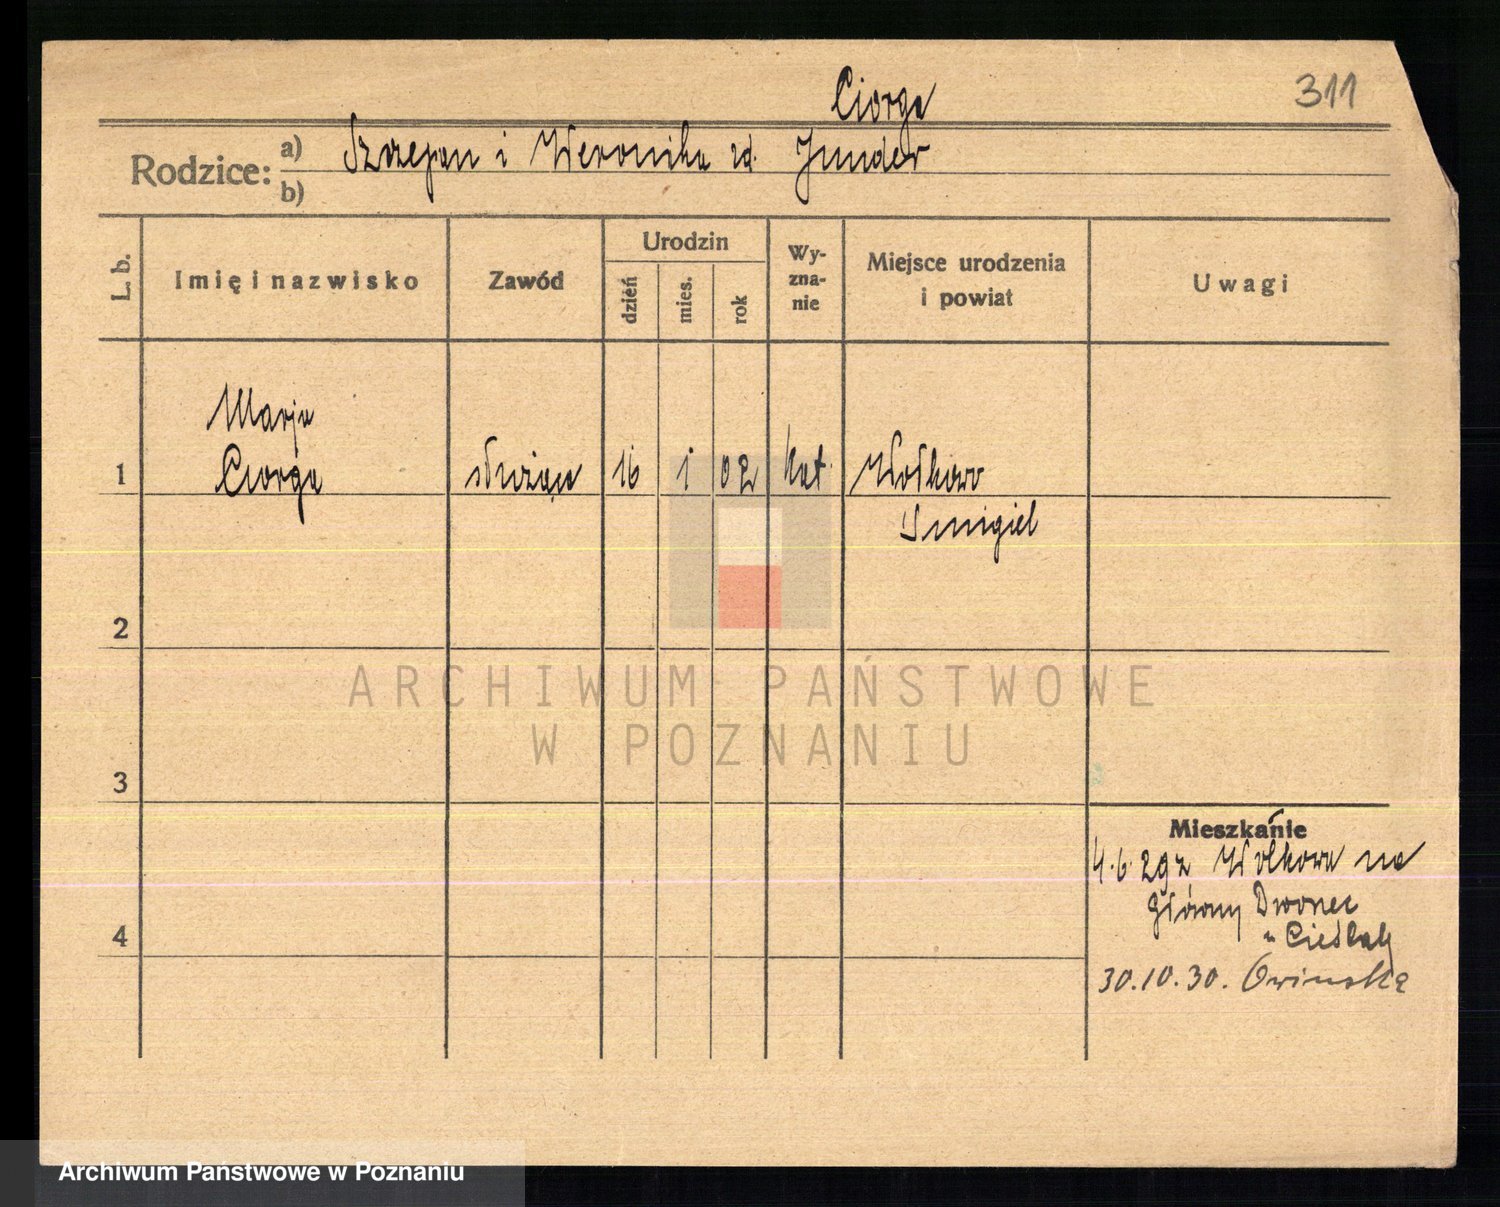 311
Ciorga
Rodzice: a) Szczepan i Weronika zd. Junder
b)
L. b. Imię i nazwisko Zawód Urodzin dzień mies. rok Wyznanie Miejsce urodzenia i powiat Uwagi
Marja
1 Ciorga służąca 16 1 02 kat. Wolkowo
Smigiel
2
ARCHIWUM PAŃSTWOWE
W POZNANIU
3
Mieszkanie
4.6.29 z Wolkowa na
Główny Dworzec
4
30.10.30. Owinska
Archiwum Państwowe w Poznaniu